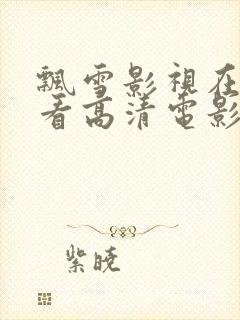 飄雪影視在
看高清電影
紫曉